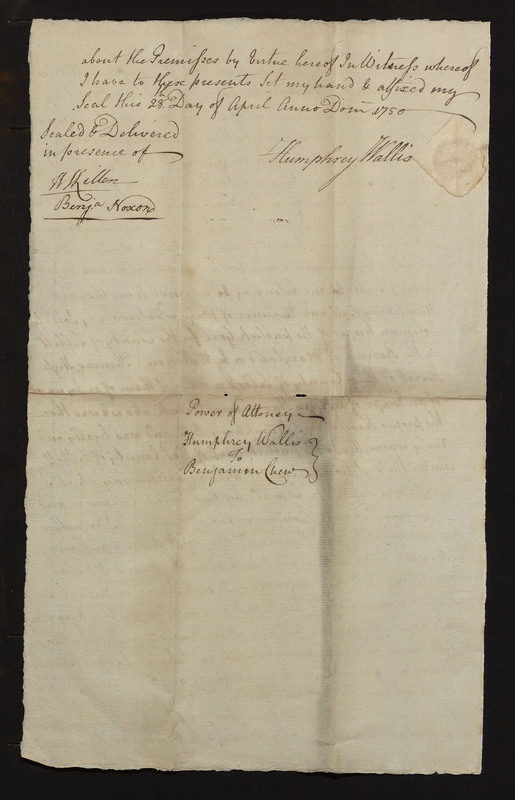 about the Premisses by Virtue hereof In Witness whereof
I have to these presents Set my hand & affixed my
Seal this 28th Day of April Anno Dom 1750
Sealed & Delivered
in presence of
Humphrey Wallis
W Killen
Benja Noxon
Power of Attorney
Humphrey Wallis
To
Benjamin Chew